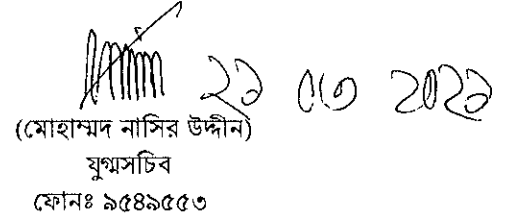 ২১ ০৩ ২০২১
(মোহাম্মদ নাসির উদ্দীন)
যুগ্মসচিব
ফোনঃ ৯৫৪৯৫৫৩